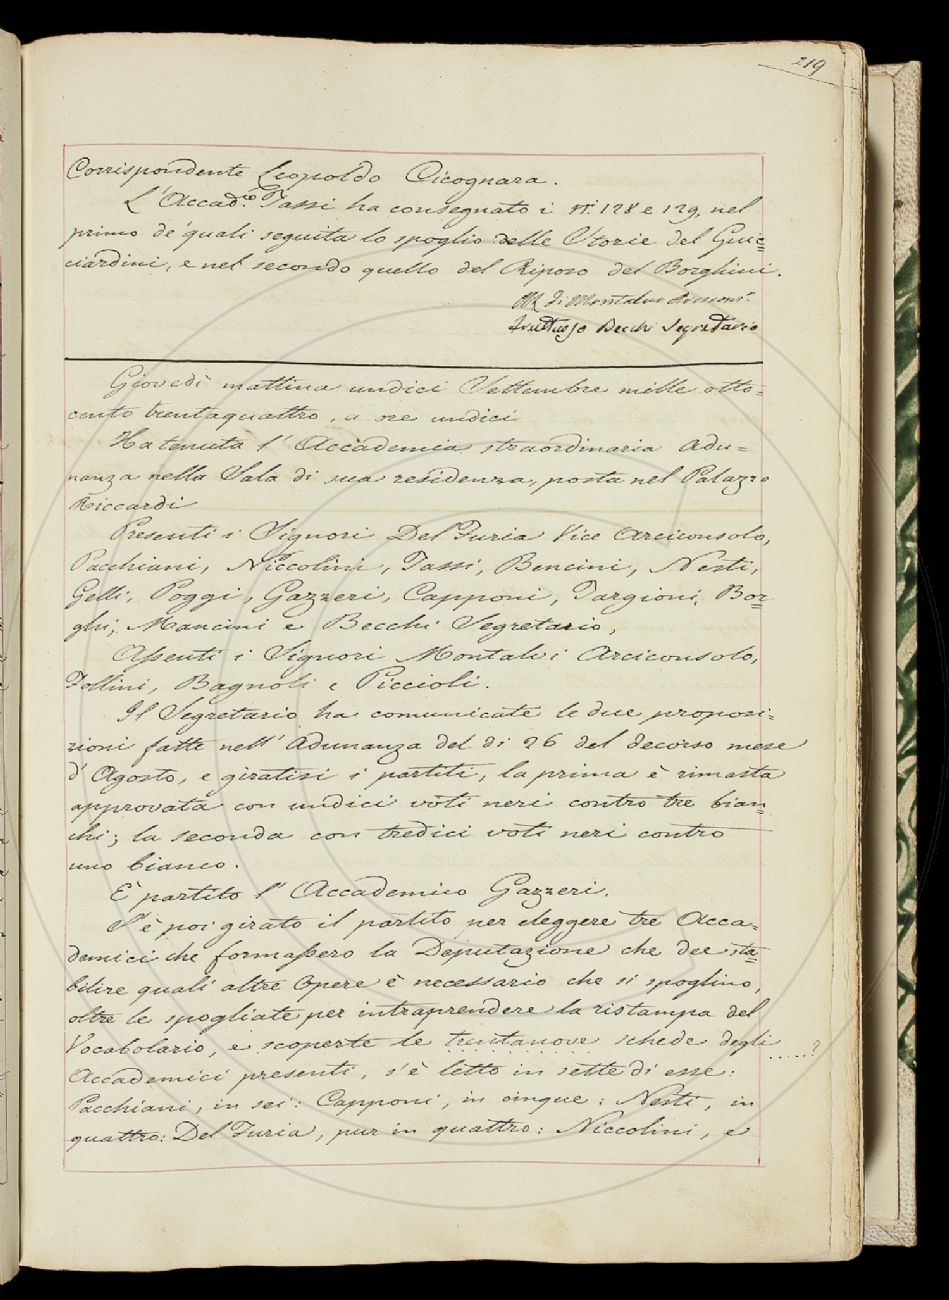 219
Corrispondente Leopoldo Cicognara.
L'Accad.co Tassi ha consegnato i nⁱ. 128 e 129, nel
primo de' quali seguita lo spoglio delle Storie del Guic=
ciardini, e nel secondo quello del Riposo del Borghini.
di Montalvi
Fruttuoso Becchi Segretario
Giovedì mattina undici Settembre mille otto=
cento trentaquattro, a ore undici
Ha tenuta l'Accademia straordinaria Adu=
nanza nella Sala di sua residenza, posta nel Palazzo
Riccardi
Presenti i Signori Del Furia Vice Arciconsolo,
Pacchiani, Niccolini, Tassi, Bencini, Nesti,
Gelli, Poggi, Gazzeri, Capponi, Targioni, Bor=
ghi, Mancini e Becchi Segretario,
Assenti i Signori Montalvi Arciconsolo,
Follini, Bagnoli e Piccioli.
Il Segretario ha comunicate le due proposi=
zioni fatte nell'Adunanza del dì 26 del decorso mese
d'Agosto, e giratisi i partiti, la prima è rimasta
approvata con undici voti neri contro tre bian=
chi; la seconda con tredici voti neri contro
uno bianco.
È partito l'Accademico Gazzeri.
S'è poi girato il partito per eleggere tre Acca=
demici che formassero la Deputazione che dee sta=
bilire quali altre Opere è necessario che si spoglino,
oltre le spogliate per intraprendere la ristampa del
Vocabolario, e scoperte le trentanove schede degli .....?
Accademici presenti, s'è letto in sette di esse:
Pacchiani, in sei: Capponi, in cinque: Nesti, in
quattro: Del Furia, pur in quattro: Niccolini, e